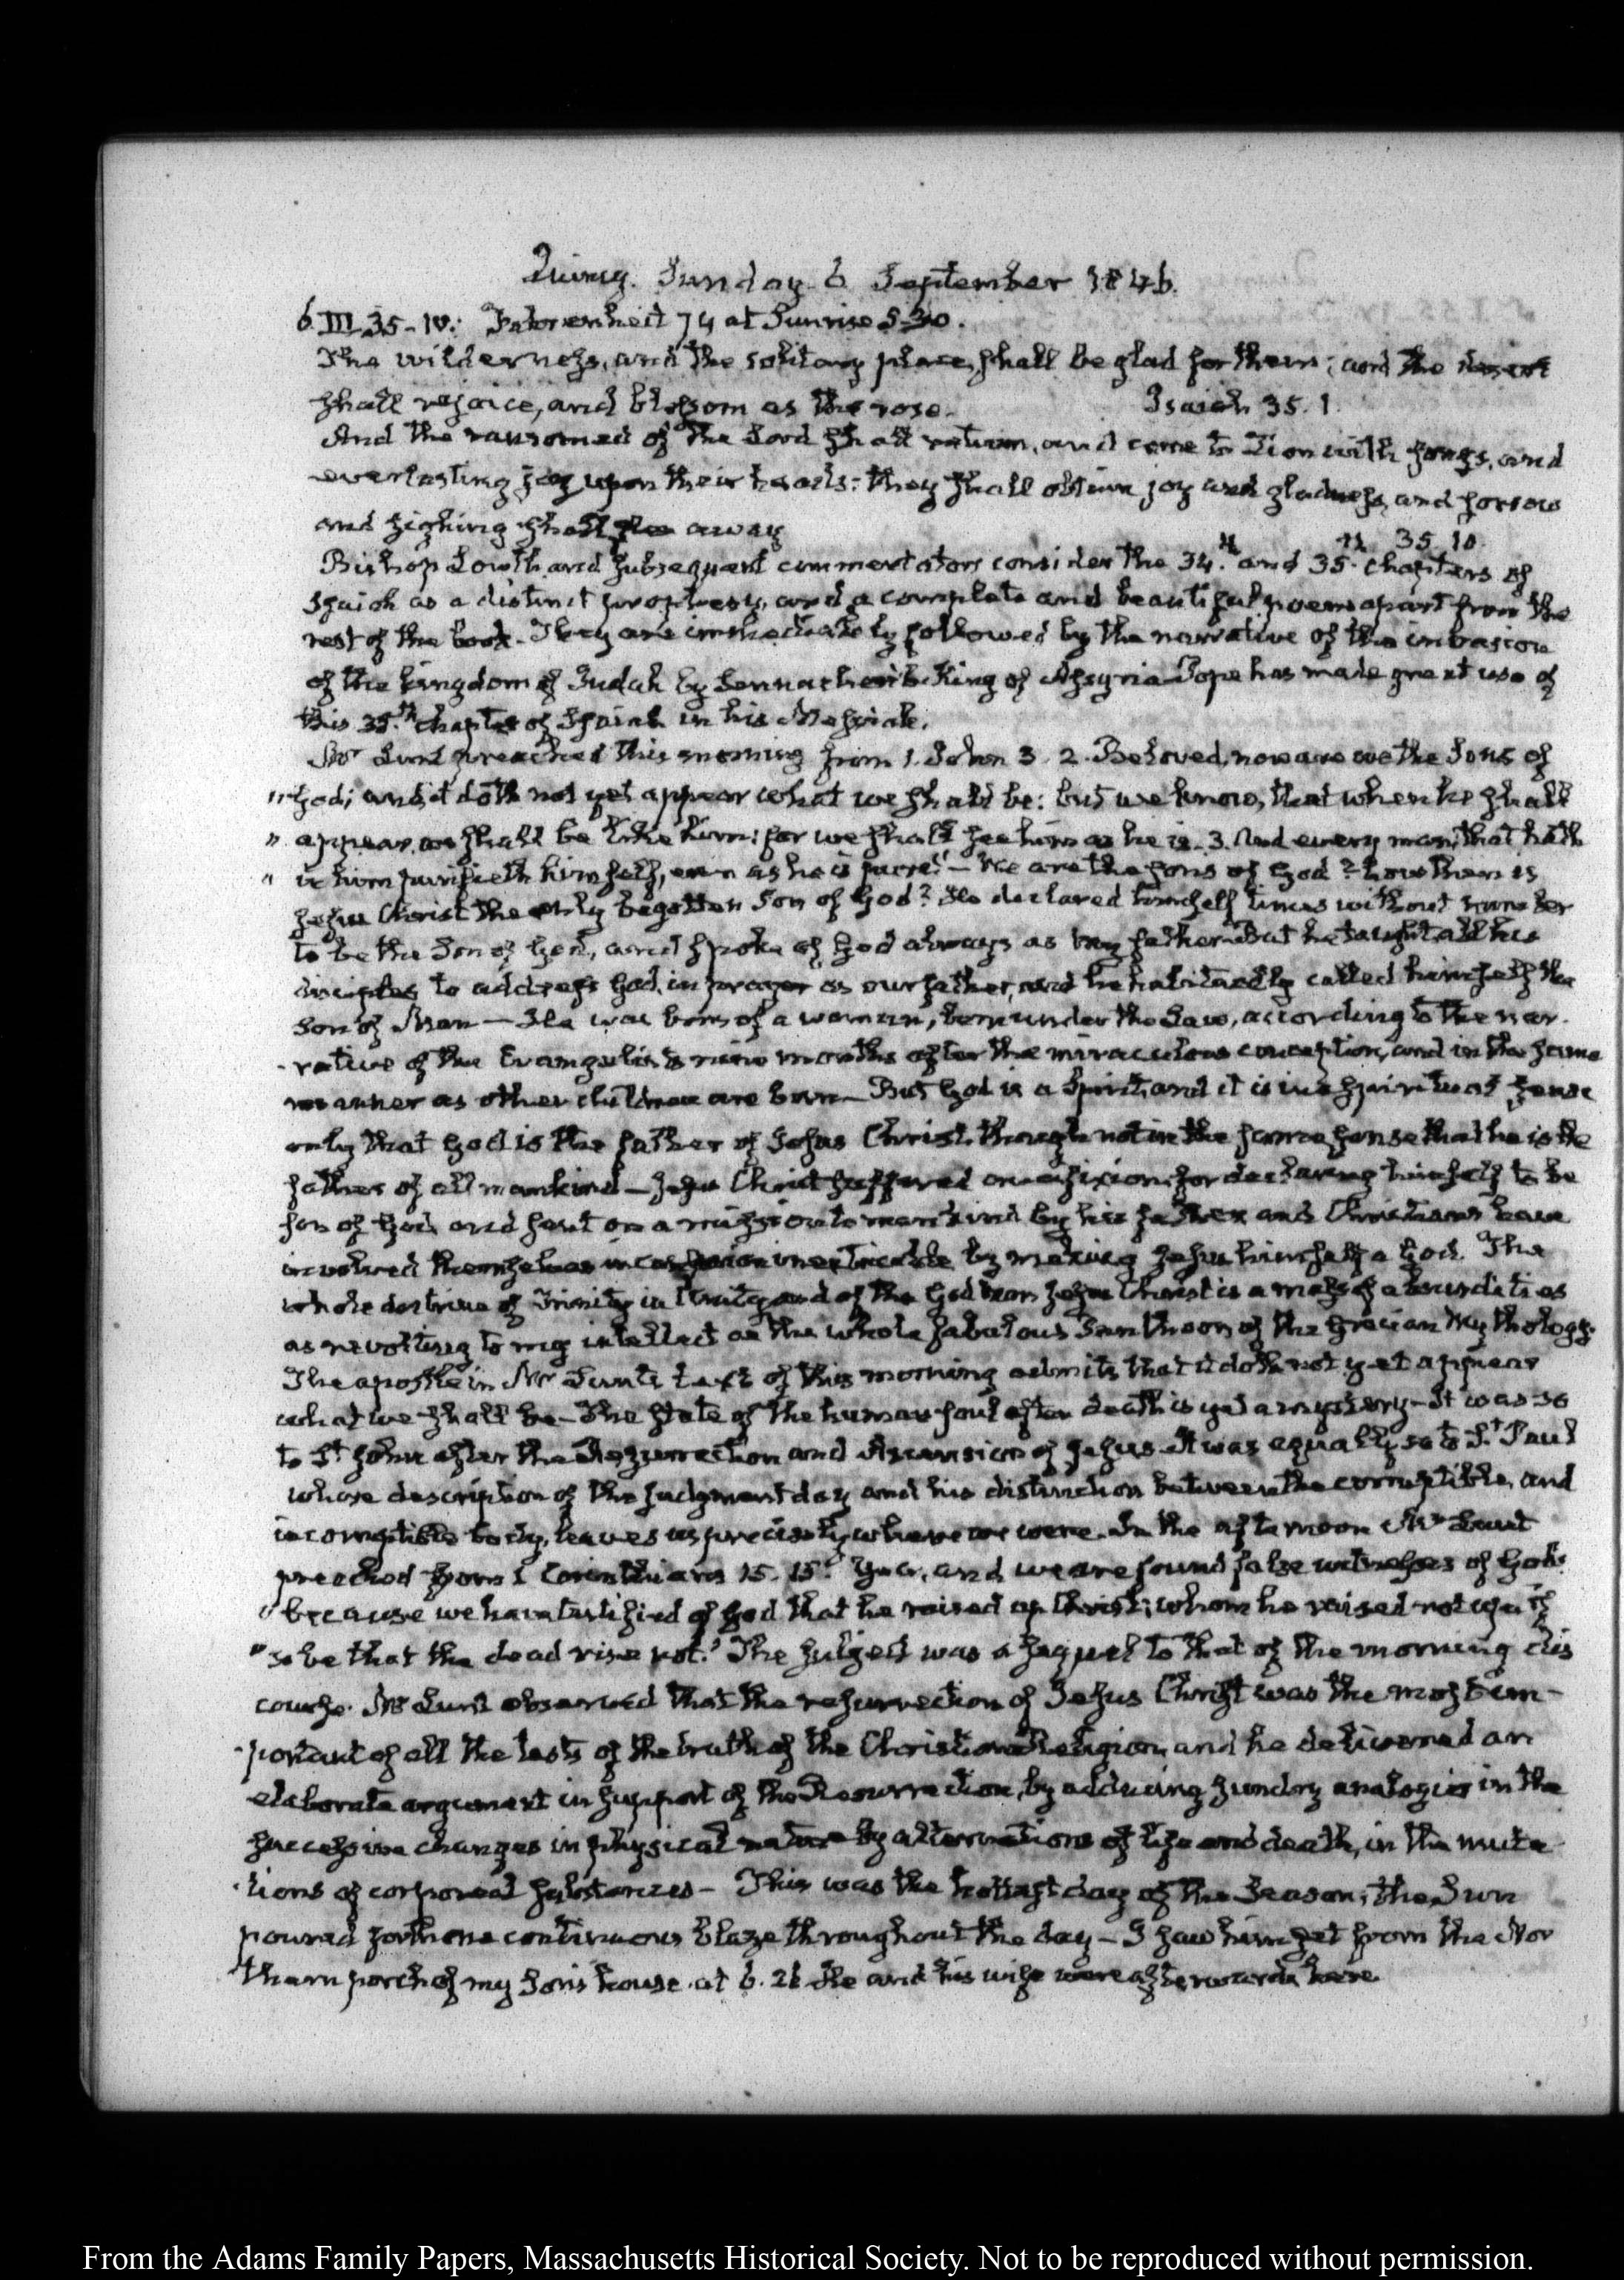 Quincy. Sunday 6 September 1846.
6. III. 35-IV: Fahrenheit 74 at Sunrise 5-30.
The wilderness, and the solitary place, shall be glad for them; and the desert
shall rejoice, and blossom as the rose. Isaiah 35. 1.
And the ransomed of the Lord shall return, and come to Zion with songs, and
everlasting joy upon their heads: they shall obtain joy and gladness, and sorrow
and sighing shall flee away 35. 10.
Bishop Lowth and subsequent commentators consider the 34th. and 35th. chapters of
Isaiah as a distinct prophesy, and a complete and beautiful poem apart from the
rest of the book. They are immediately followed by the narrative of the invasion
of the kingdom of Judah by Sennacherib King of Assyria Pope has made great use of
this 35th. chapter of Isaiah in his Messiah.
Mr Lunt preached this morning from 1. John 3. 2. Beloved, now are we the Sons of
"God; and it doth not yet appear what we shall be: but we know, that when he shall
" appear, we shall be like him: for we shall see him as he is. 3. And every man, that hath
" in him purifieth himself, even as he is pure." — We are the sons of God? how then is
Jesus Christ the only begotten Son of God? He declared himself times without number
to be the Son of God, and spoke of God always as my father. But he taught all his
disciples to address God, in prayer as our father, and he habitually called himself the
Son of Man — He was born of a woman, born under the Law, according to the nar-
-rative of the Evangelists nine months after the miraculous conception, and in the same
manner as other children are born — But God is a Spirit, and it is in a spiritual sense
only that God is the father of Jesus Christ, though not in the same sense that he is the
father of all mankind — Jesus Christ suffered crucifixion for declaring himself to be
son of God and sent on a mission to mankind by his father and Christians have
involved themselves in confusion inextricable by making Jesus himself a God. The
whole doctrine of Trinity in Unity and of the God man Jesus Christ is a mass of absurdities
as revolting to my intellect as the whole fabulous Pantheon of the Grecian Mythology.
The apostle in Mr Lunt's text of this morning admits that it doth not yet appear
what we shall be — The state of the human soul after death is yet a mystery — It was so
to St John after the Resurrection and Ascension of Jesus. It was equally so to St. Paul
whose description of the judgment day and his distinction between the corruptible, and
incorruptible body, leaves us precisely where we were. In the afternoon Mr Lunt
preached from 1 Corinthians 15. 15. "Yea, and we are found false witnesses of God:
"because we have testified of God that he raised up Christ; whom he raised not up if
"so be that the dead rise not." The subject was a sequel to that of the morning dis
course. Mr Lunt observed that the resurrection of Jesus Christ was the most im-
-portant of all the tests of the truth of the Christian Religion, and he delivered an
elaborate argument in support of the Resurrection, by adducing sundry analogies in the
successive changes in physical nature by alternations of life and death, in the muta
-tions of corporeal substances — This was the hottest day of the Season; the Sun
poured forth one continuous blaze throughout the day — I saw him set from the Nor
thern porch of my Son's house at 6. 26 He and his wife were afterwards here
From the Adams Family Papers, Massachusetts Historical Society. Not to be reproduced without permission.